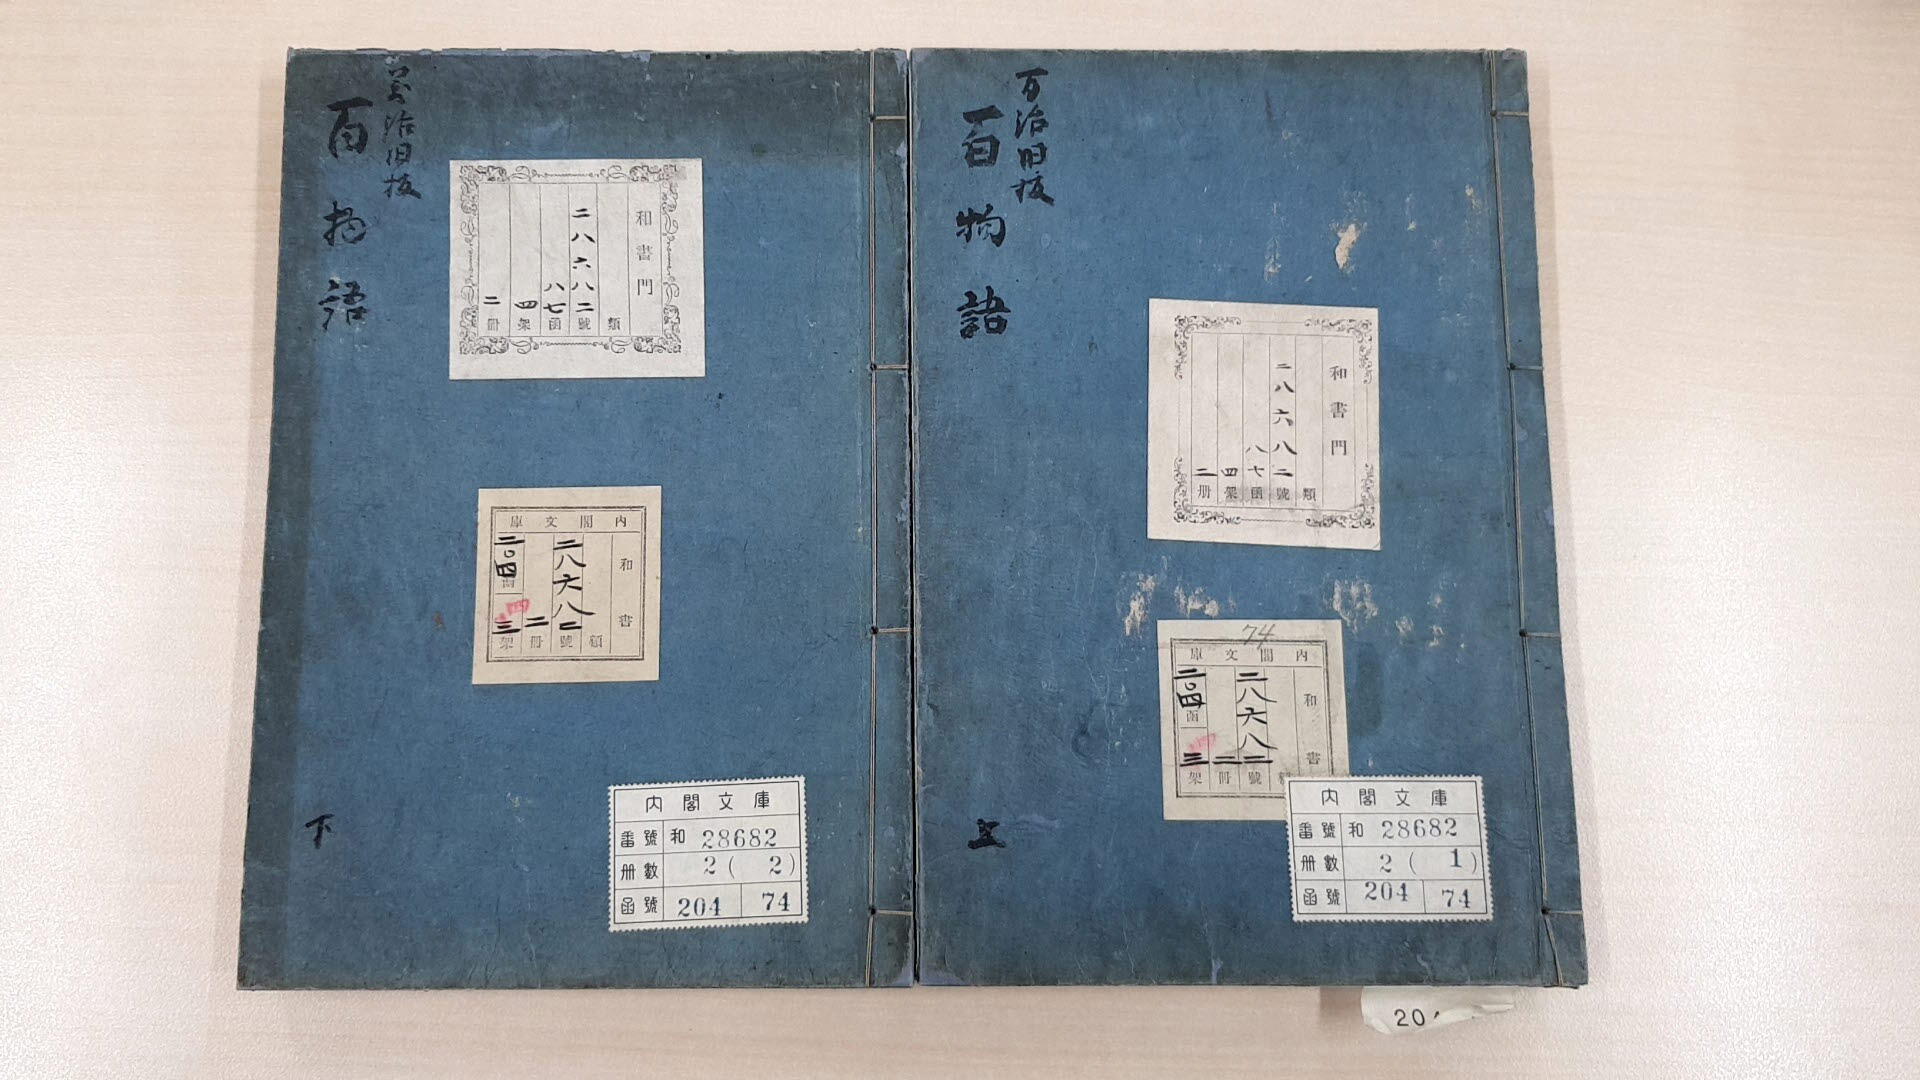 万治旧板
百物語
上
和書門
類
二八六八二號
八七函
四架
二册
74
内閣文庫
和書
類
二八六八二號
二冊
二〇四函
四
三架
内閣文庫
番號 和 28682
册數 2 ( 1 )
函號 204 74
204
萬治旧板
百物語
下
和書門
類
二八六八二號
八七函
四架
二冊
内閣文庫
和書
類
二八六八二號
二冊
二〇四函
四
三架
内閣文庫
番號 和 28682
册數 2 ( 2 )
函號 204 74